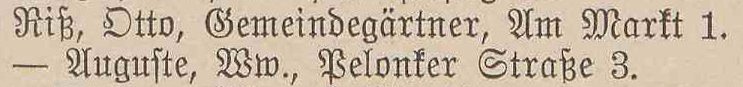 Riß, Otto, Gemeindegärtner, Am Markt 1.
— Auguſte, Ww., Pelonker Straße 3.